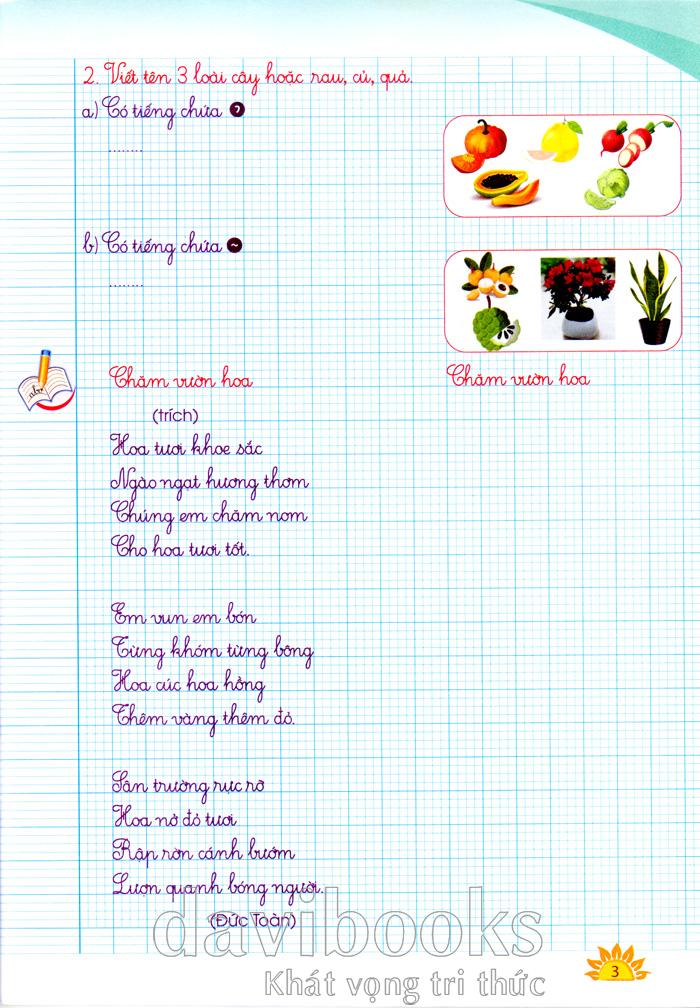 2. Viết tên 3 loài cây hoặc rau, củ, quả.
a) Có tiếng chứa ?
........
b) Có tiếng chứa ~
........
abc
Chăm vườn hoa
Chăm vườn hoa
(trích)
Hoa tươi khoe sắc
Ngào ngạt hương thơm
Chúng em chăm nom
Cho hoa tươi tốt.
Em vun em bón
Từng khóm từng bông
Hoa cúc hoa hồng
Thêm vàng thêm đỏ.
Sân trường rực rỡ
Hoa nở đỏ tươi
Rập rờn cánh bướm
Lượn quanh bóng người.
(Đức Toàn)
davibooks
Khát vọng tri thức
3